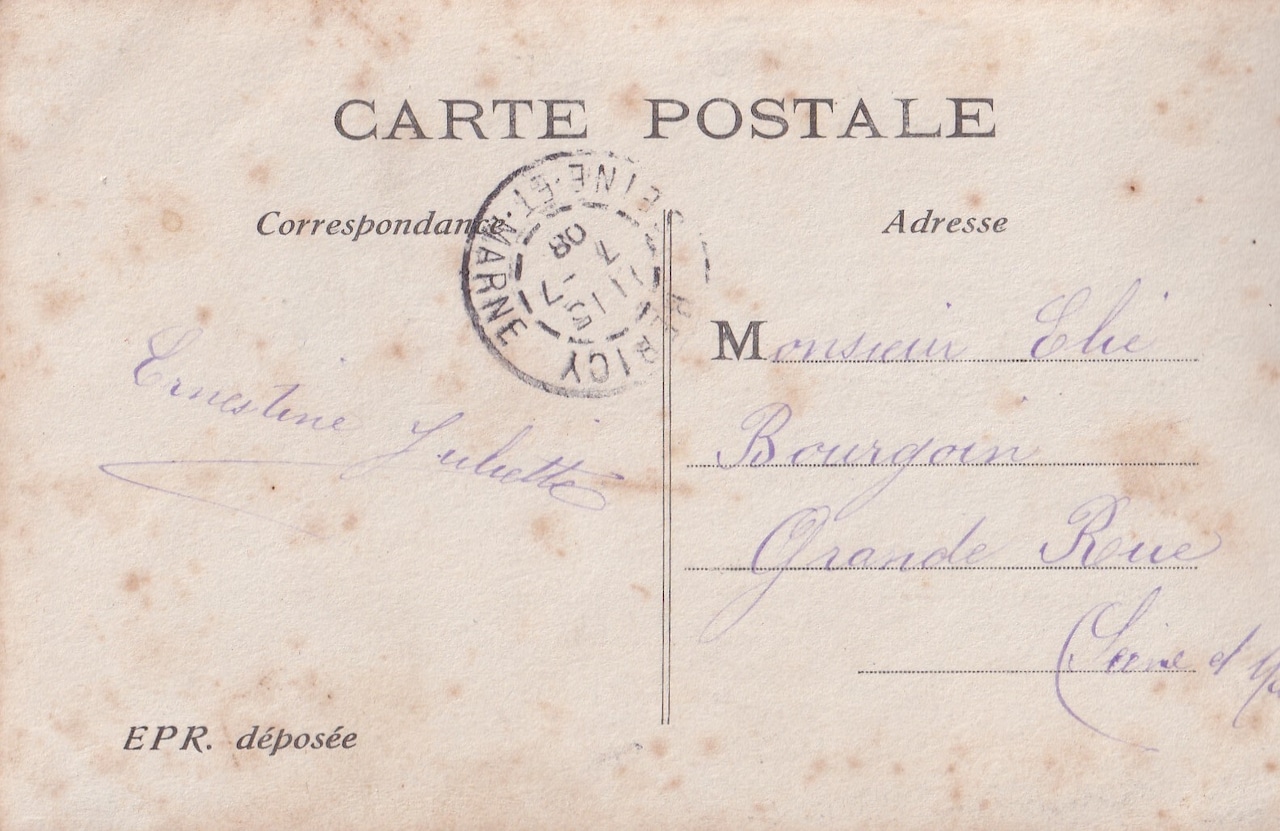 CARTE POSTALE
Correspondance
Adresse
SEINE-ET-MARNE
11 15
7 - 7
08
Monsieur Elie
Bourgoin
Grande Rue
(Seine et
Ernestine Juliette
EPR. déposée